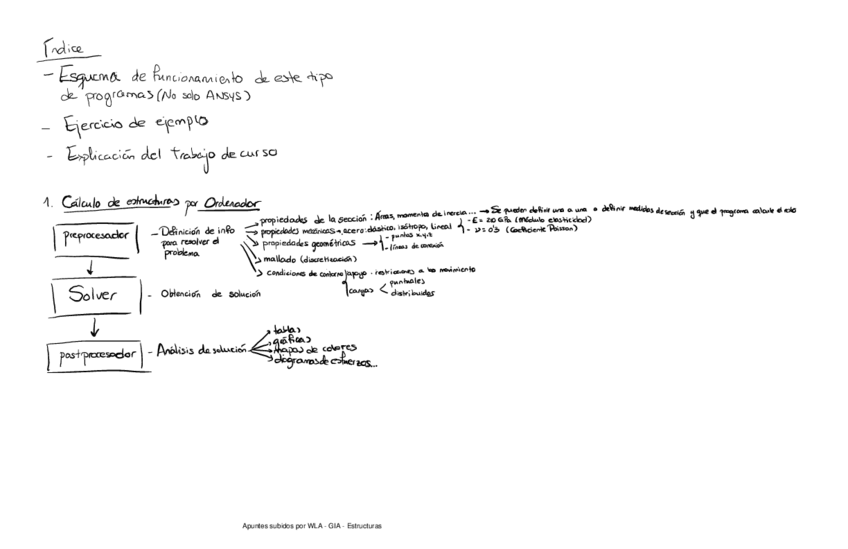 Índice
- Esquema de funcionamiento de este tipo
de programas (No solo ANSYS)
- Ejercicio de ejemplo
- Explicación del trabajo de curso
1. Cálculo de estructuras por Ordenador
preprocesador
- Definición de info
para resolver el
problema
propiedades de la sección: Áreas, momentos de inercia... → Se pueden definir una a una o definir medidas de sección y que el programa calcule el resto
propiedades mecánicas → acero: elástico, isótropo, lineal
- E = 20 GPa (Módulo elasticidad)
- ν = 0'3 (Coeficiente Poisson)
propiedades geométricas →
- puntos x,y,z
- líneas de conexión
mallado (discretización)
condiciones de contorno
apoyo - restricciones a los movimientos
cargas
puntuales
distribuidas
Solver
- Obtención de solución
postprocesador
- Análisis de solución
tablas
gráficas
mapas de colores
diagramas de esfuerzos...
Apuntes subidos por WLA - GIA - Estructuras